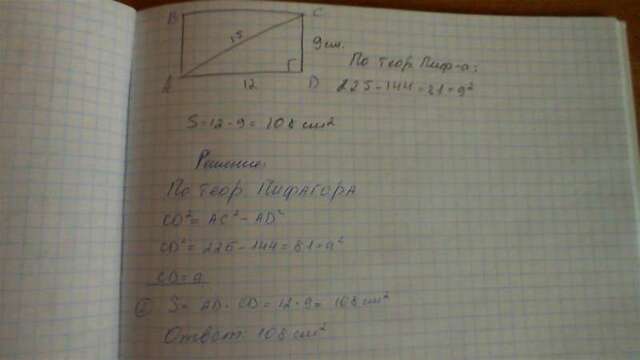 B C
15
9 см.
A 12 D
По теор. Пиф-а:
225-144=81=9²
S=12·9=108 см²
Решение:
По теор. Пифагора
CD²=AC²-AD²
CD²=225-144=81=9²
CD=9
S=AD·CD=12·9=108 см²
Ответ: 108 см²